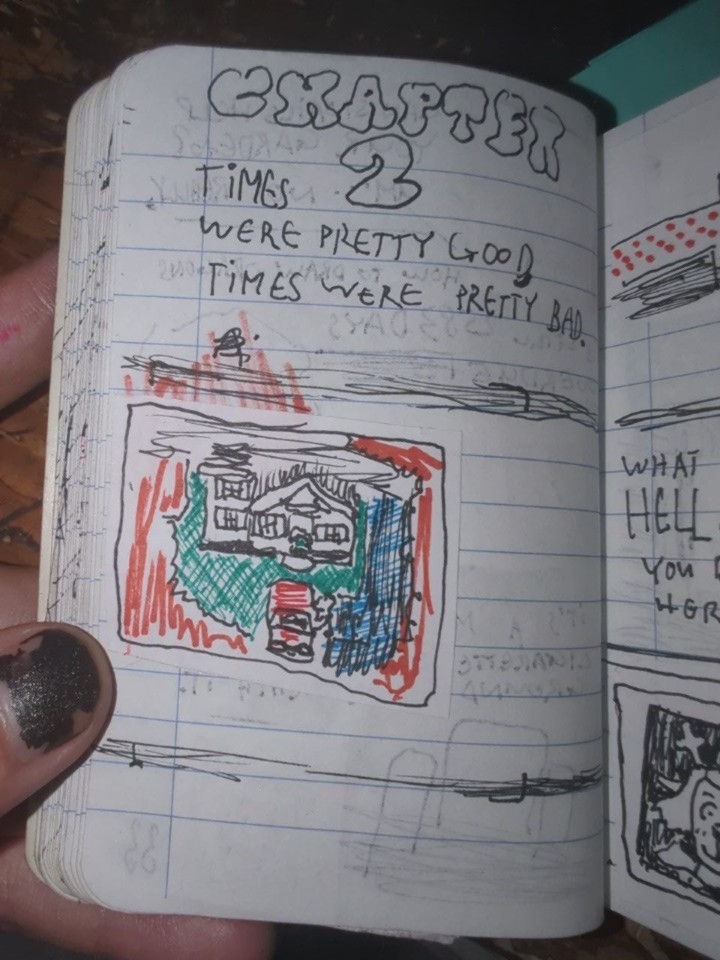 CHAPTER
2
TIMES
WERE PRETTY GOOD
TIMES WERE PRETTY BAD.
WHAT
HELL
YOU
HER